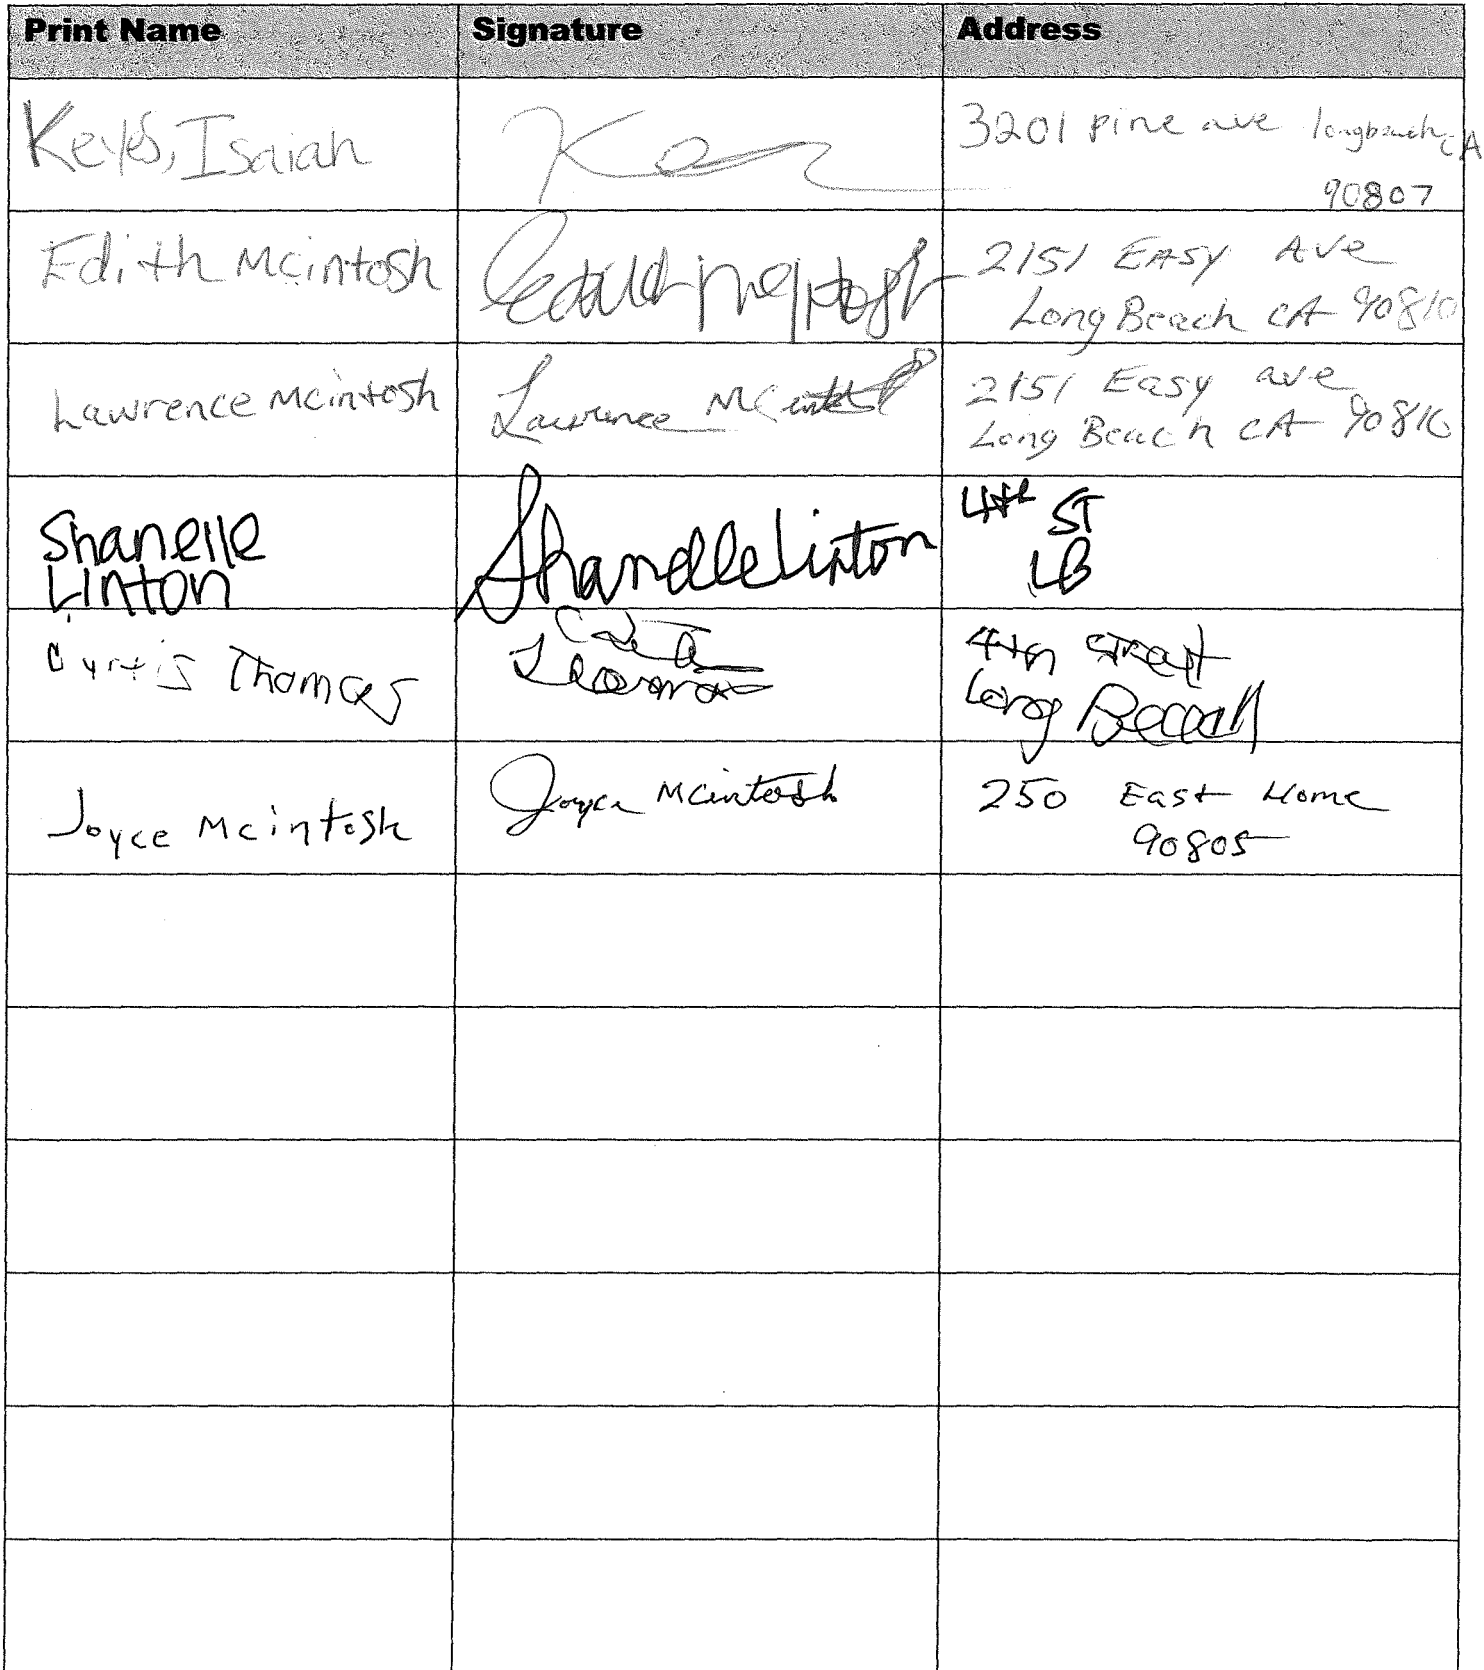 Print Name Signature Address
Keyes, Isaiah 3201 pine ave longbeach, CA
90807
Edith Mcintosh 2151 EASY AVE
Long Beach CA 90810
Lawrence Mcintosh Lawrence McIntosh 2151 Easy ave
Long Beach CA 90810
Shanelle
Linton
Shanelle Linton
4th ST
LB
Curtis Thomas
4th Street
Long Beach
Joyce Mcintosh Joyce Mcintosh 250 East Home
90805